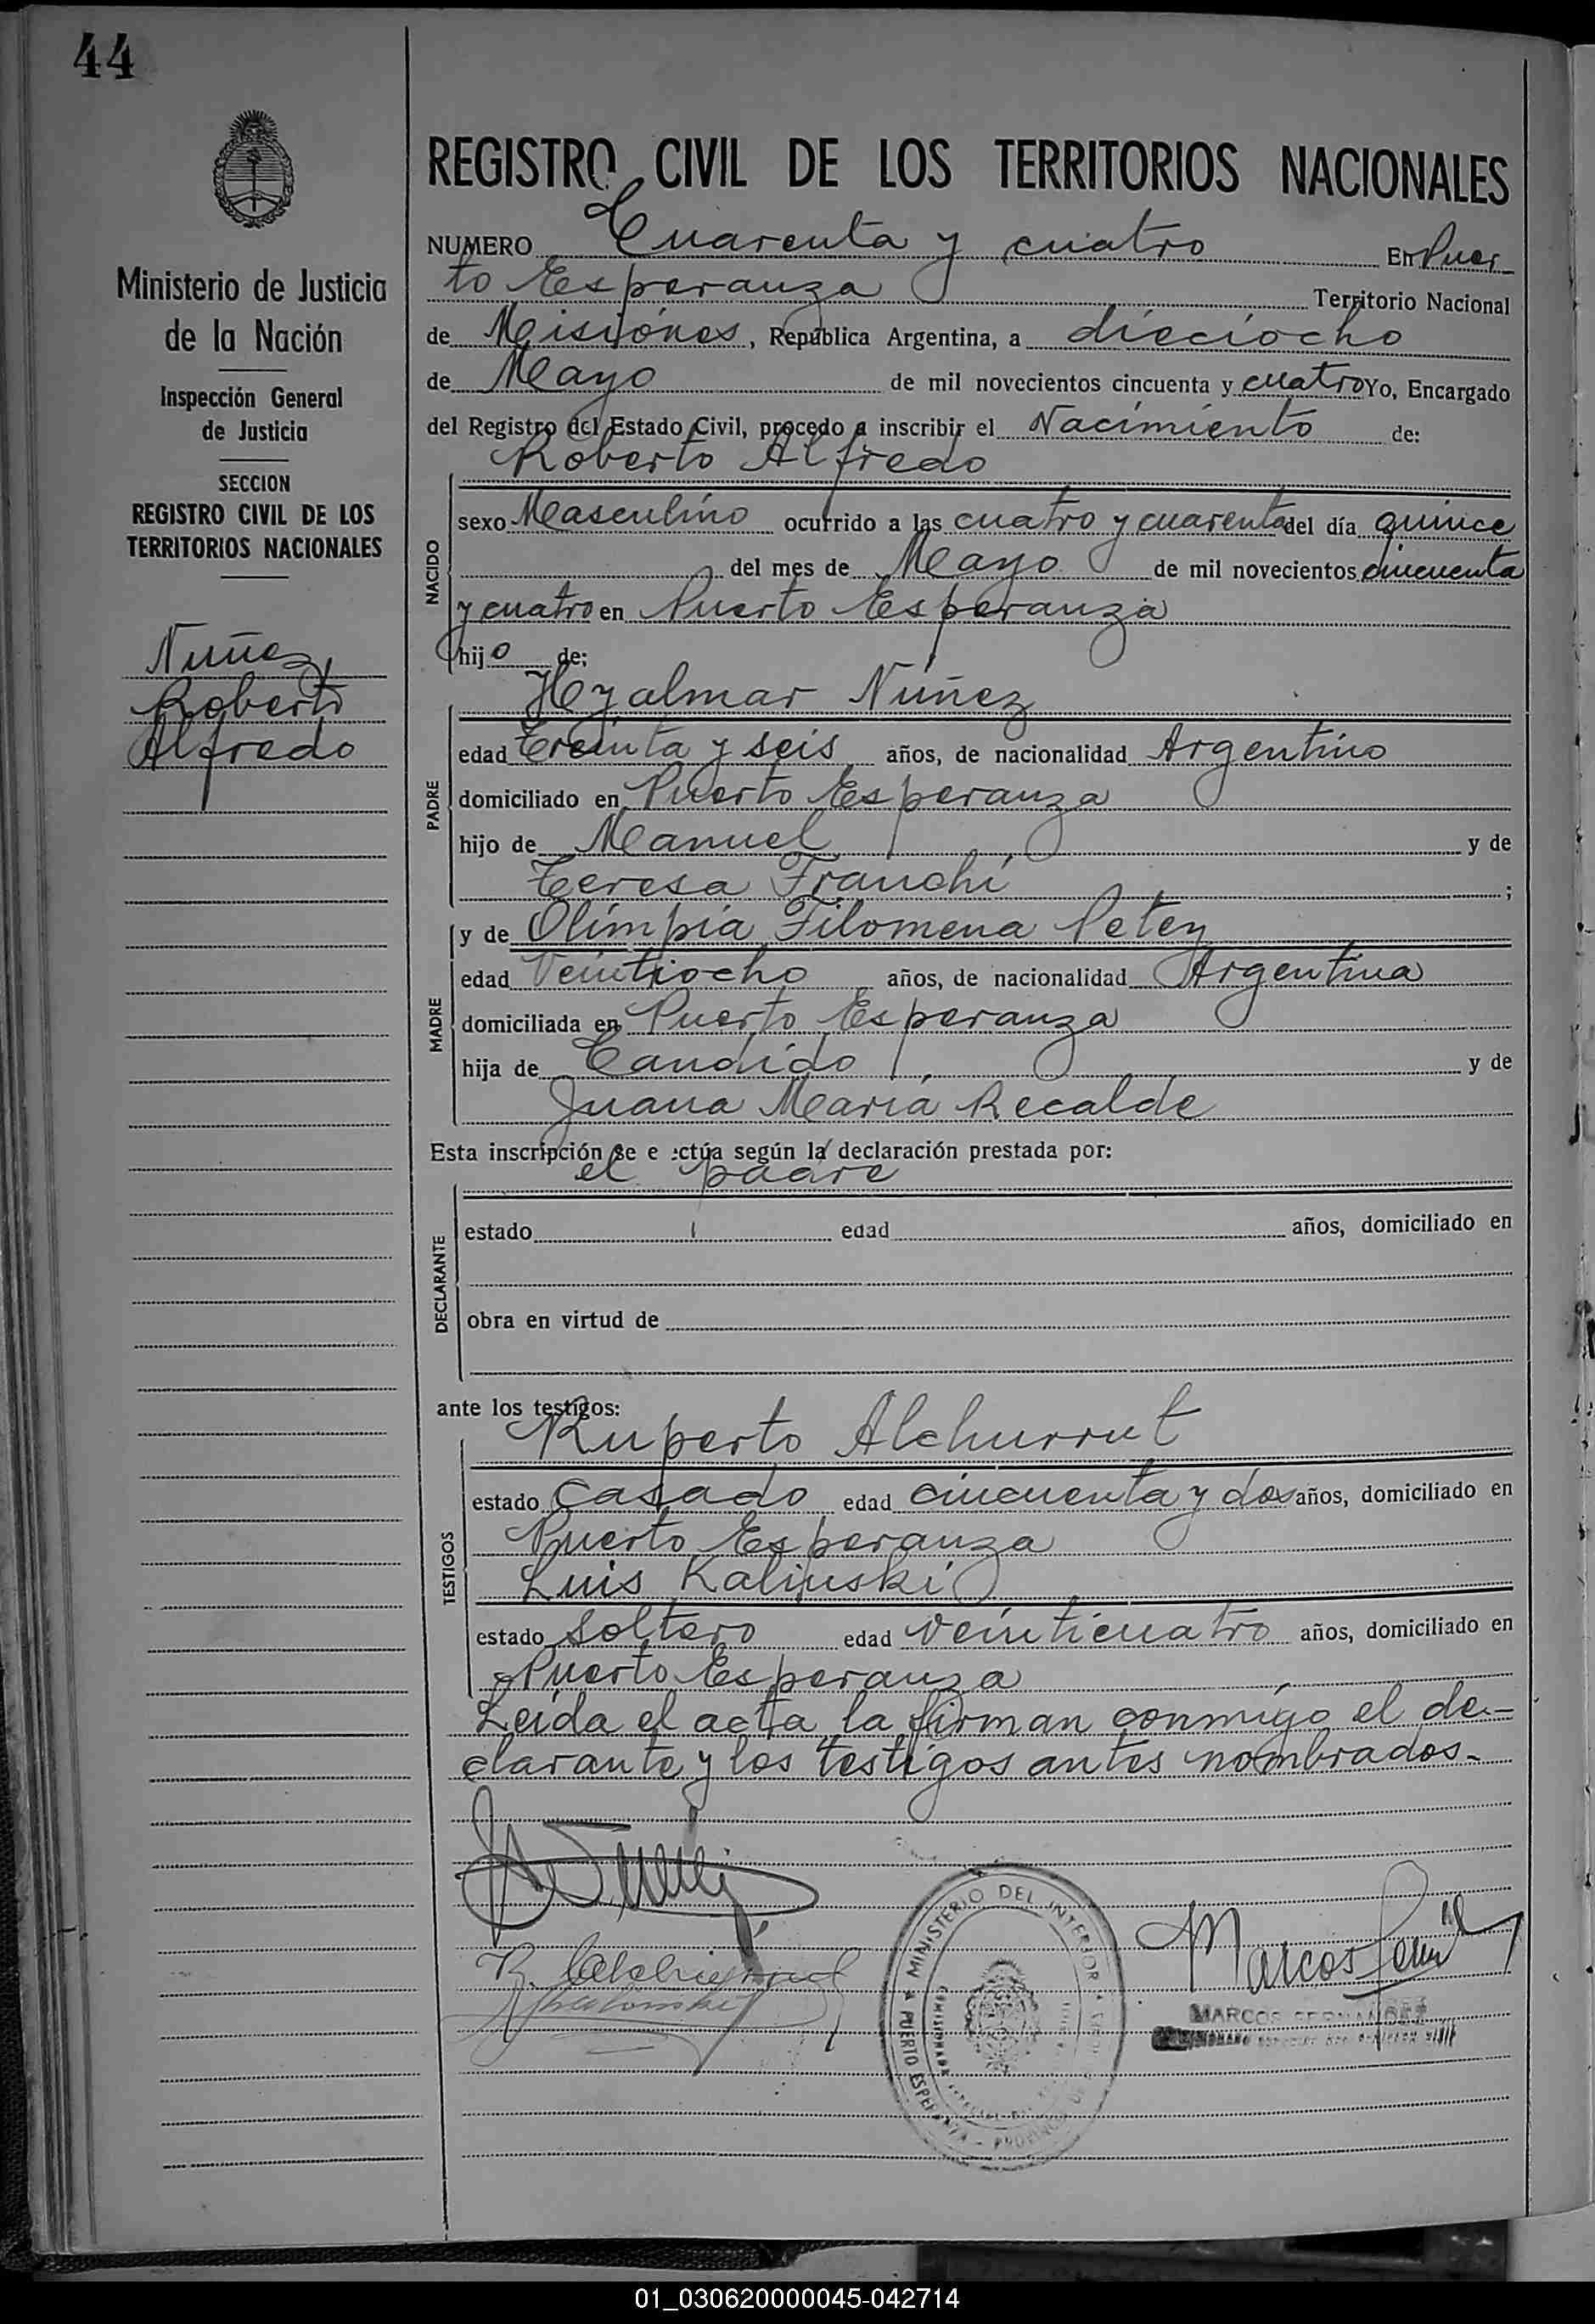 44
Ministerio de Justicia
de la Nación
Inspección General
de Justicia
SECCION
REGISTRO CIVIL DE LOS
TERRITORIOS NACIONALES
Nuñez
Roberto
Alfredo
REGISTRO CIVIL DE LOS TERRITORIOS NACIONALES
NUMERO Cuarenta y cuatro En Puer
to Esperanza Territorio Nacional
de Misiones, República Argentina, a dieciocho
de Mayo de mil novecientos cincuenta y cuatro Yo, Encargado
del Registro del Estado Civil, procedo a inscribir el Nacimiento de:
Roberto Alfredo
NACIDO
sexo Masculino ocurrido a las cuatro y cuarenta del día quince
del mes de Mayo de mil novecientos cincuenta
y cuatro en Puerto Esperanza
hijo de:
Hyalmar Núñez
PADRE
edad Treinta y seis años, de nacionalidad Argentino
domiciliado en Puerto Esperanza
hijo de Manuel y de
Teresa Franchi ;
MADRE
y de Olimpia Filomena Petey
edad Veintiocho años, de nacionalidad Argentina
domiciliada en Puerto Esperanza
hija de Candido y de
Juana María Recalde
Esta inscripción se e ctúa según la declaración prestada por:
el padre
DECLARANTE
estado edad años, domiciliado en
obra en virtud de
ante los testigos:
Ruperto Alchurrut
TESTIGOS
estado Casado edad cincuenta y dos años, domiciliado en
Puerto Esperanza
Luis Kalinski
estado soltero edad veinticuatro años, domiciliado en
Puerto Esperanza
Leída el acta la firman conmigo el de-
clarante y los testigos antes nombrados.-
MINISTERIO DEL INTERIOR
PUERTO ESPERANZA
Marcos
MARCOS FERNANDEZ
01_030620000045-042714